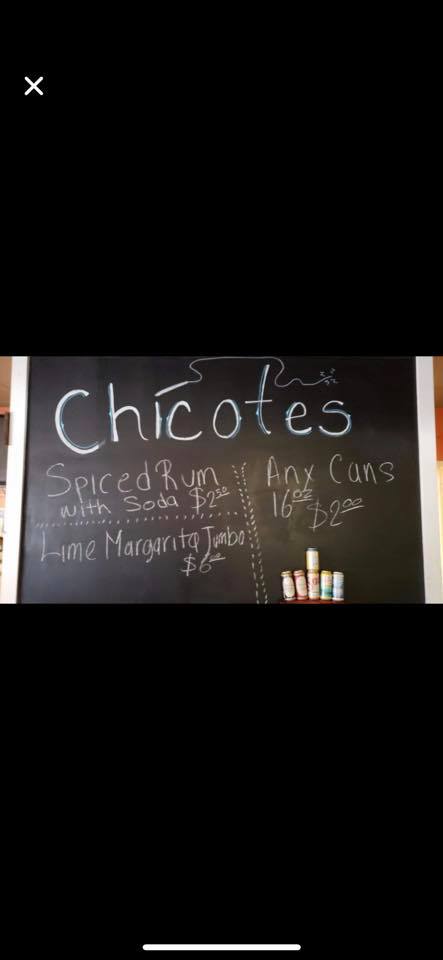 Chicotes
Spiced Rum
with Soda $2.50
Lime Margarita Jumbo
$6.00
Any Cans
16oz
$2.00